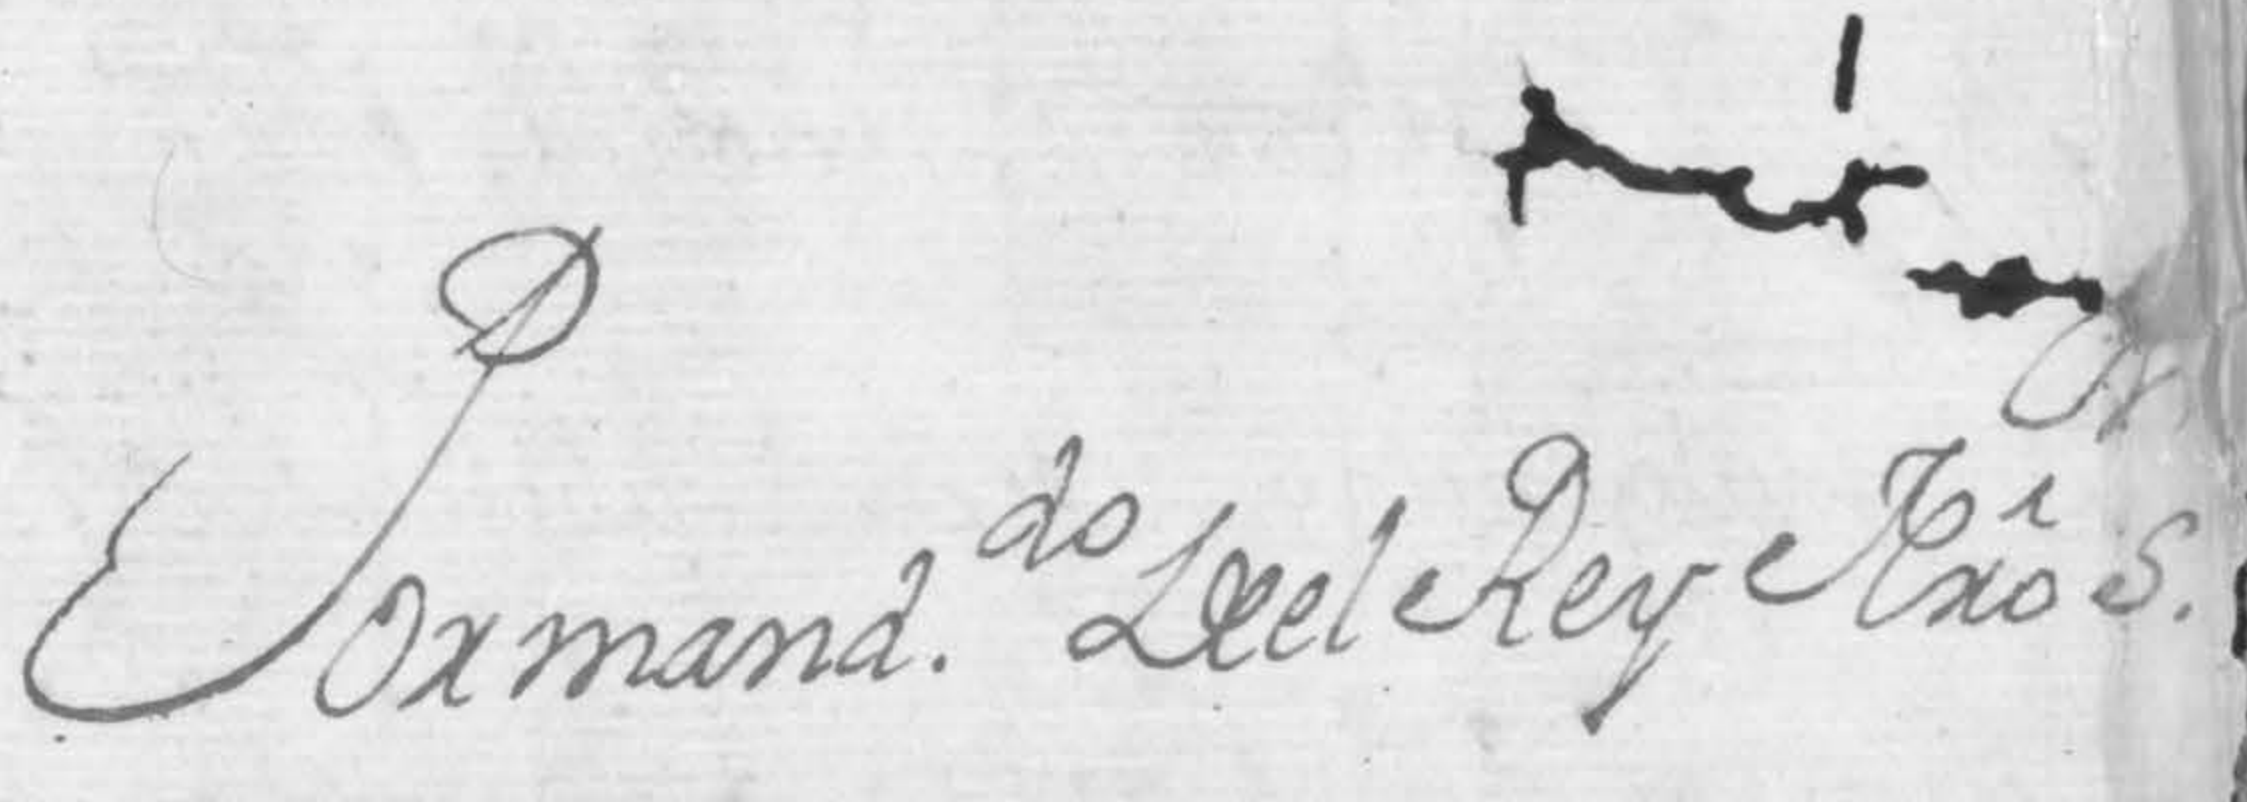 Por mand.do del Rey Nro S.r